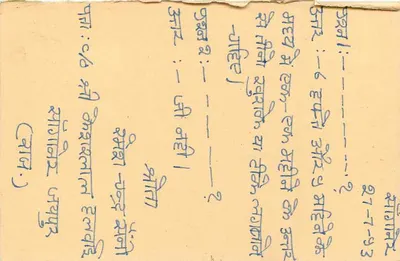 सांगानेर
२१-7-५३
प्रश्न 1:- - - - - - - ?
उत्तर :- ६ हफ्ते और ९ महिने के
मध्य में एक-एक महीने के अन्तर
से तीनो खुराके या टीके लगवाने
चाहिए।
प्रश्न २:- - - - - - ?
उत्तर :- जी नहीं।
श्रोता
रमेश चन्द्र सैनी
पता: c/o श्री केशरलाल हलवाई
सांगानेर जयपुर
(राज.)